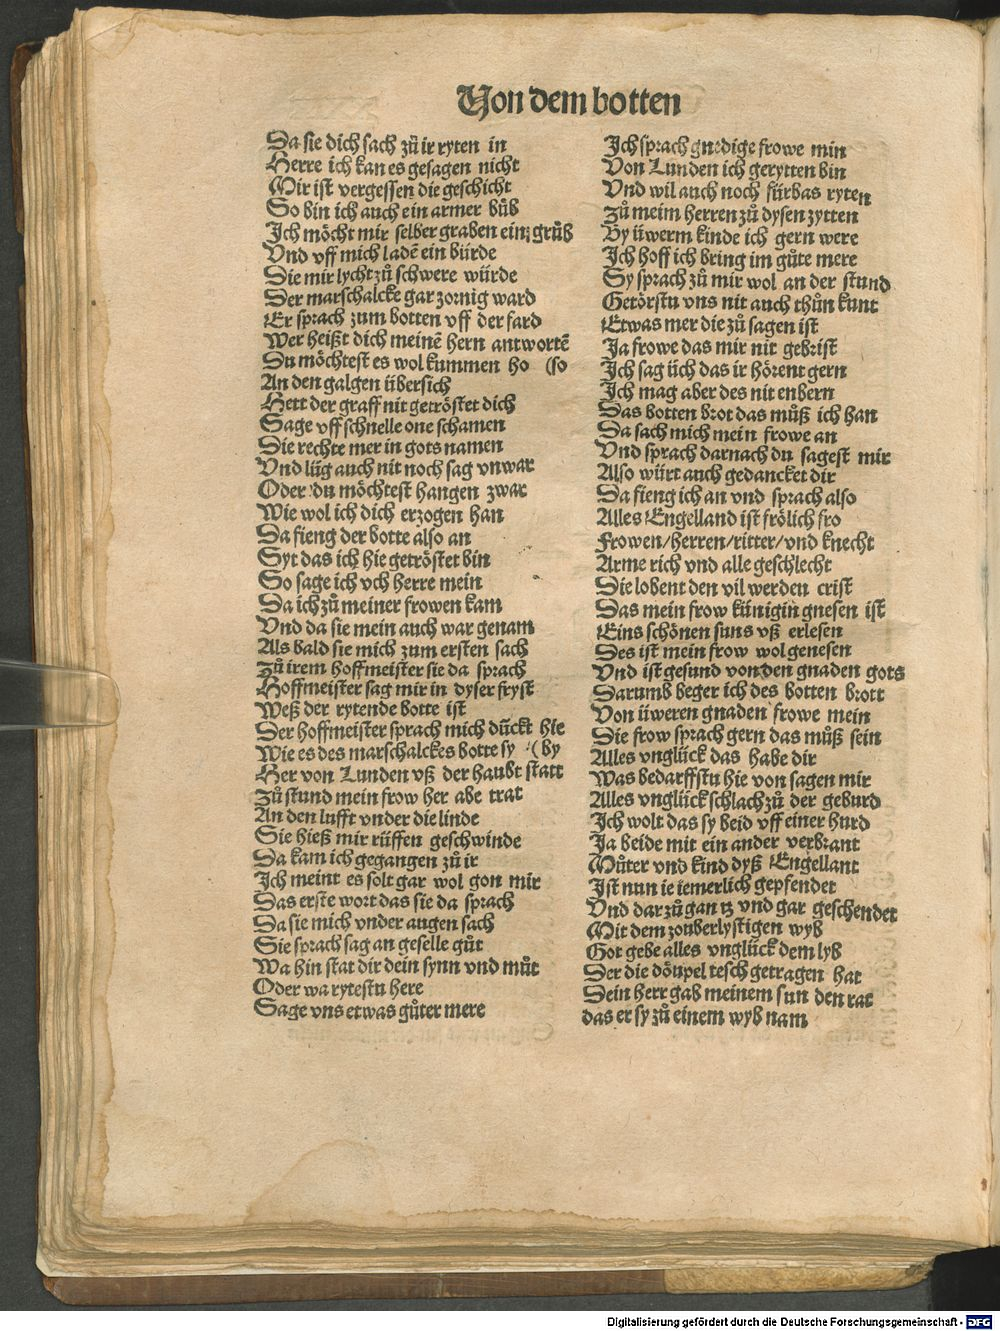 Von dem botten
Da sie dich sach zů ir ryten in
Herre ich kan es gesagen nicht
Mir ist vergessen die geschicht
So bin ich auch ein armer bůb
Ich möcht mir selber graben ein grůb
Vnd vff mich ladē ein bürde
Die mir lycht zů schwere würde
Der marschalcke gar zornig ward
Er sprach zum botten vff der fard
Wer heißt dich meinē hern antwortē
Du möchtest es wol kummen ho (so
An den galgen übersich
Hett der graff nit getröstet dich
Sage vff schnelle one schamen
Die rechte mer in gots namen
Vnd lüg auch nit noch sag vnwar
Oder du möchtest hangen zwar
Wie wol ich dich erzogen han
Da fieng der botte also an
Syt das ich hie getröstet bin
So sage ich vch herre mein
Da ich zů meiner frowen kam
Vnd da sie mein auch war genam
Als bald sie mich zum ersten sach
zů irem hoffmeister sie da sprach
Hoffmeister sag mir in dyser fryst
Weß der rytende botte ist
Der hoffmeister sprach mich dückt hie
Wie es des marschalckes botte sy (by
Her von Lunden vß der haubt statt
zů stund mein frow her abe trat
An den lufft vnder die linde
Sie hieß mir rüffen geschwinde
Da kam ich gegangen zů ir
Ich meint es solt gar wol gon mir
Das erste wort das sie da sprach
Da sie mich vnder augen sach
Sie sprach sag an geselle gůt
Wa hin stat dir dein synn vnd můt
Oder wa rytestu here
Sage vns etwas gůter mere
Ich sprach gnedige frowe min
Von Lunden ich gerytten bin
Vnd wil auch noch fürbas ryten
zů meim herren zů dysen zytten
By üwerm kinde ich gern were
Ich hoff ich bring im gůte mere
Sy sprach zů mir wol an der stund
Getörstu vns nit auch thůn kunt
Etwas mer die zů sagen ist
Ja frowe das mir nit gebrist
Ich sag üch das ir hörent gern
Ich mag aber des nit enbern
Das botten brot das můß ich han
Da sach mich mein frowe an
Vnd sprach darnach du sagest mir
Also würt auch gedancket dir
Da fieng ich an vnd sprach also
Alles Engelland ist frölich fro
Frowen/herren/ritter/vnd knecht
Arme rich vnd alle geschlecht
Die lobent den vil werden crist
Das mein frow künigin gnesen ist
Eins schönen suns vß erlesen
Des ist mein frow wol genesen
Vnd ist gesund von den gnaden gots
Darumb beger ich des botten brott
Von üweren gnaden frowe mein
Die frow sprach gern das můß sein
Alles vnglück das habe dir
Was bedarffstu hie von sagen mir
Alles vnglück schlach zů der geburd
Ich wolt das sy beid vff einer hurd
Ja beide mit ein ander verbrant
Můter vnd kind dyß Engellant
Ist nun ie iemerlich gepfendet
Vnd dar zů gantz vnd gar geschendet
Mit dem zouberlystigen wyb
Got gebe alles vnglück dem lyb
Der die döupel tesch getragen hat
Dein herr gab meinem sun den rat
das er sy zů einem wyb nam
Digitalisierung gefördert durch die Deutsche Forschungsgemeinschaft - DFG